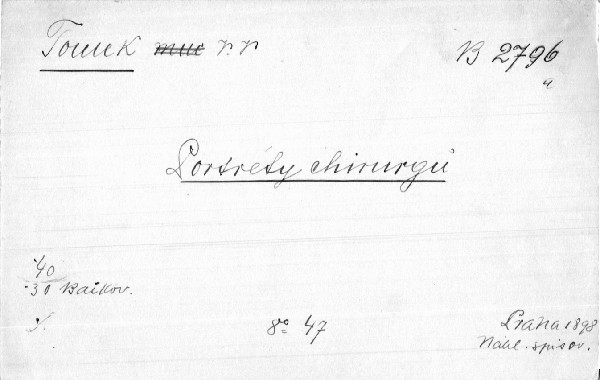 Tomek V. V. B 2796
a
Portréty chirurgů
-40
-30 Baikov.
8° 47
Praha 1898
Nákl. spisov.